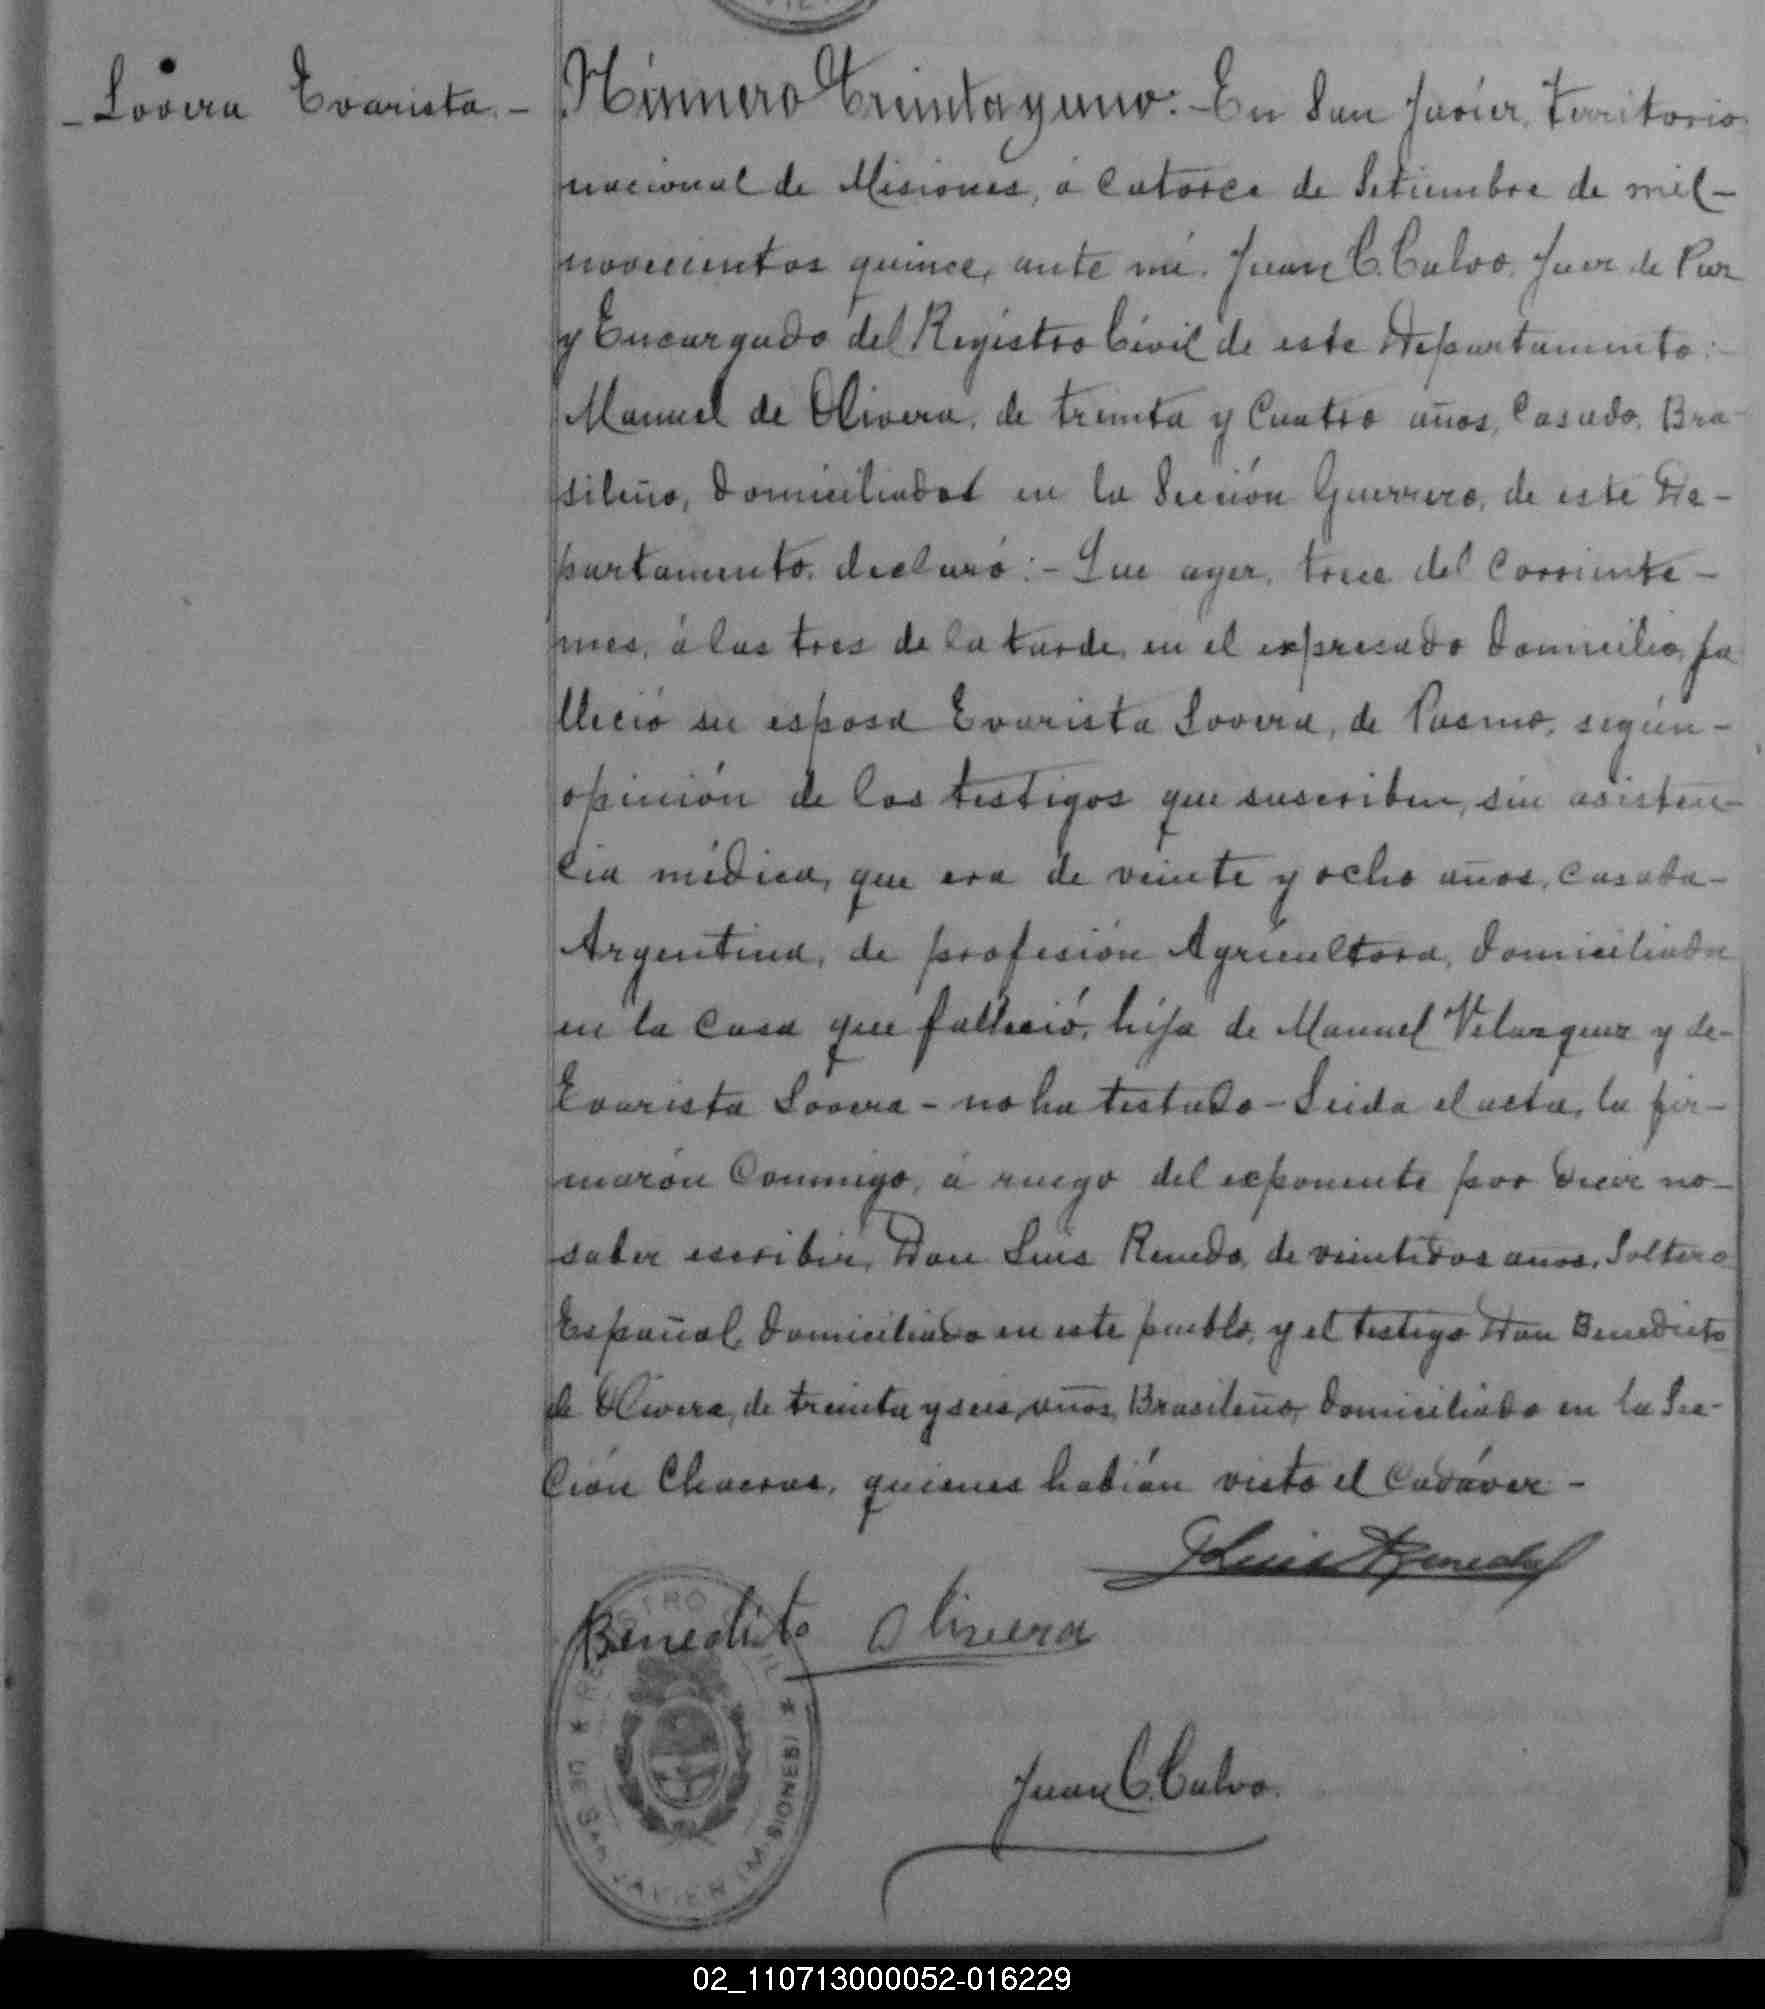 - Lovera Evarista. -
Número Treinta y uno: - En San Javier, Territorio
nacional de Misiones, á Catorce de Setiembre de mil -
novecientos quince, ante mi, Juan C. Calvo, Juez de Paz
y Encargado del Registro Civil de este Departamento: -
Manuel de Olivera, de treinta y Cuatro años, Casado, Bra-
sileño, domiciliado en la Sección Guerrero, de este De-
partamento, declaró: - Que ayer, trece del Corriente -
mes, á las tres de la tarde, en el expresado domicilio, fa
lleció su esposa Evarista Lovera, de Pasmo, según -
opinión de los testigos que suscriben, sin asisten-
cia médica, que era de veinte y ocho años, casada -
Argentina, de profesión Agricultora, domiciliada
en la Casa que falleció, hija de Manuel Velazquez y de -
Evarista Lovera - no ha testado - Leida el acta, la fir-
marón Conmigo, á ruego del exponente por decir no -
saber escribir, Don Luis Renedo, de veintidos años, Soltero
Español, domiciliado en este pueblo, y el testigo Don Benedicto
de Olivera, de treinta y seis años, Brasileño, domiciliado en la Sec-
ción Chacras, quienes habían visto el Cadáver -
Luis Renedo
Benedito Olivera
REGISTRO CIVIL
* DE SAN JAVIER (MISIONES) *
Juan C. Calvo.
02_110713000052-016229